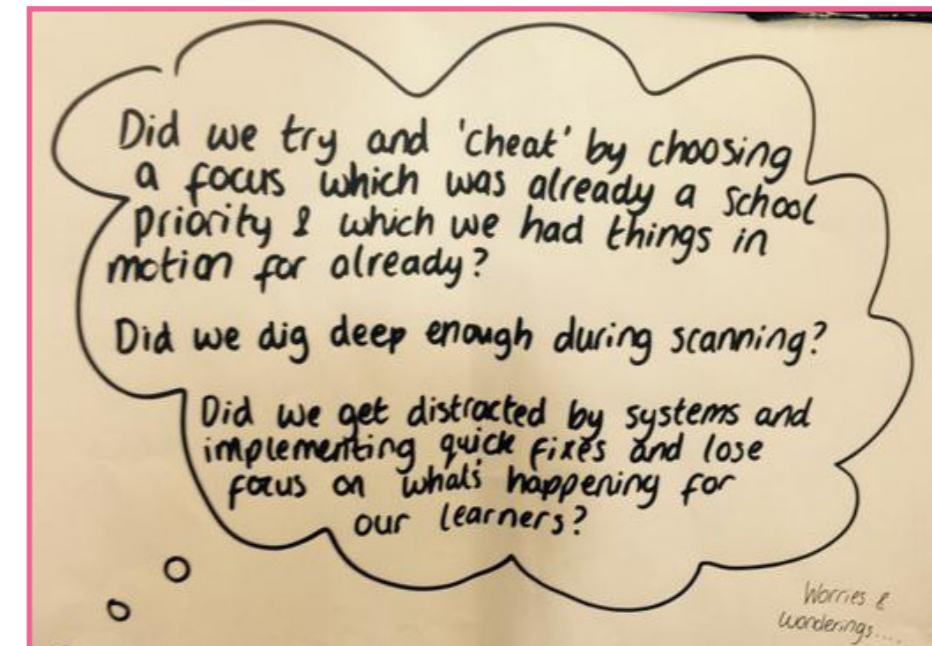 Did we try and 'cheat' by choosing
a focus which was already a school
priority & which we had things in
motion for already?
Did we dig deep enough during scanning?
Did we get distracted by systems and
implementing quick fixes and lose
focus on what's happening for
our learners?
Worries &
wonderings....